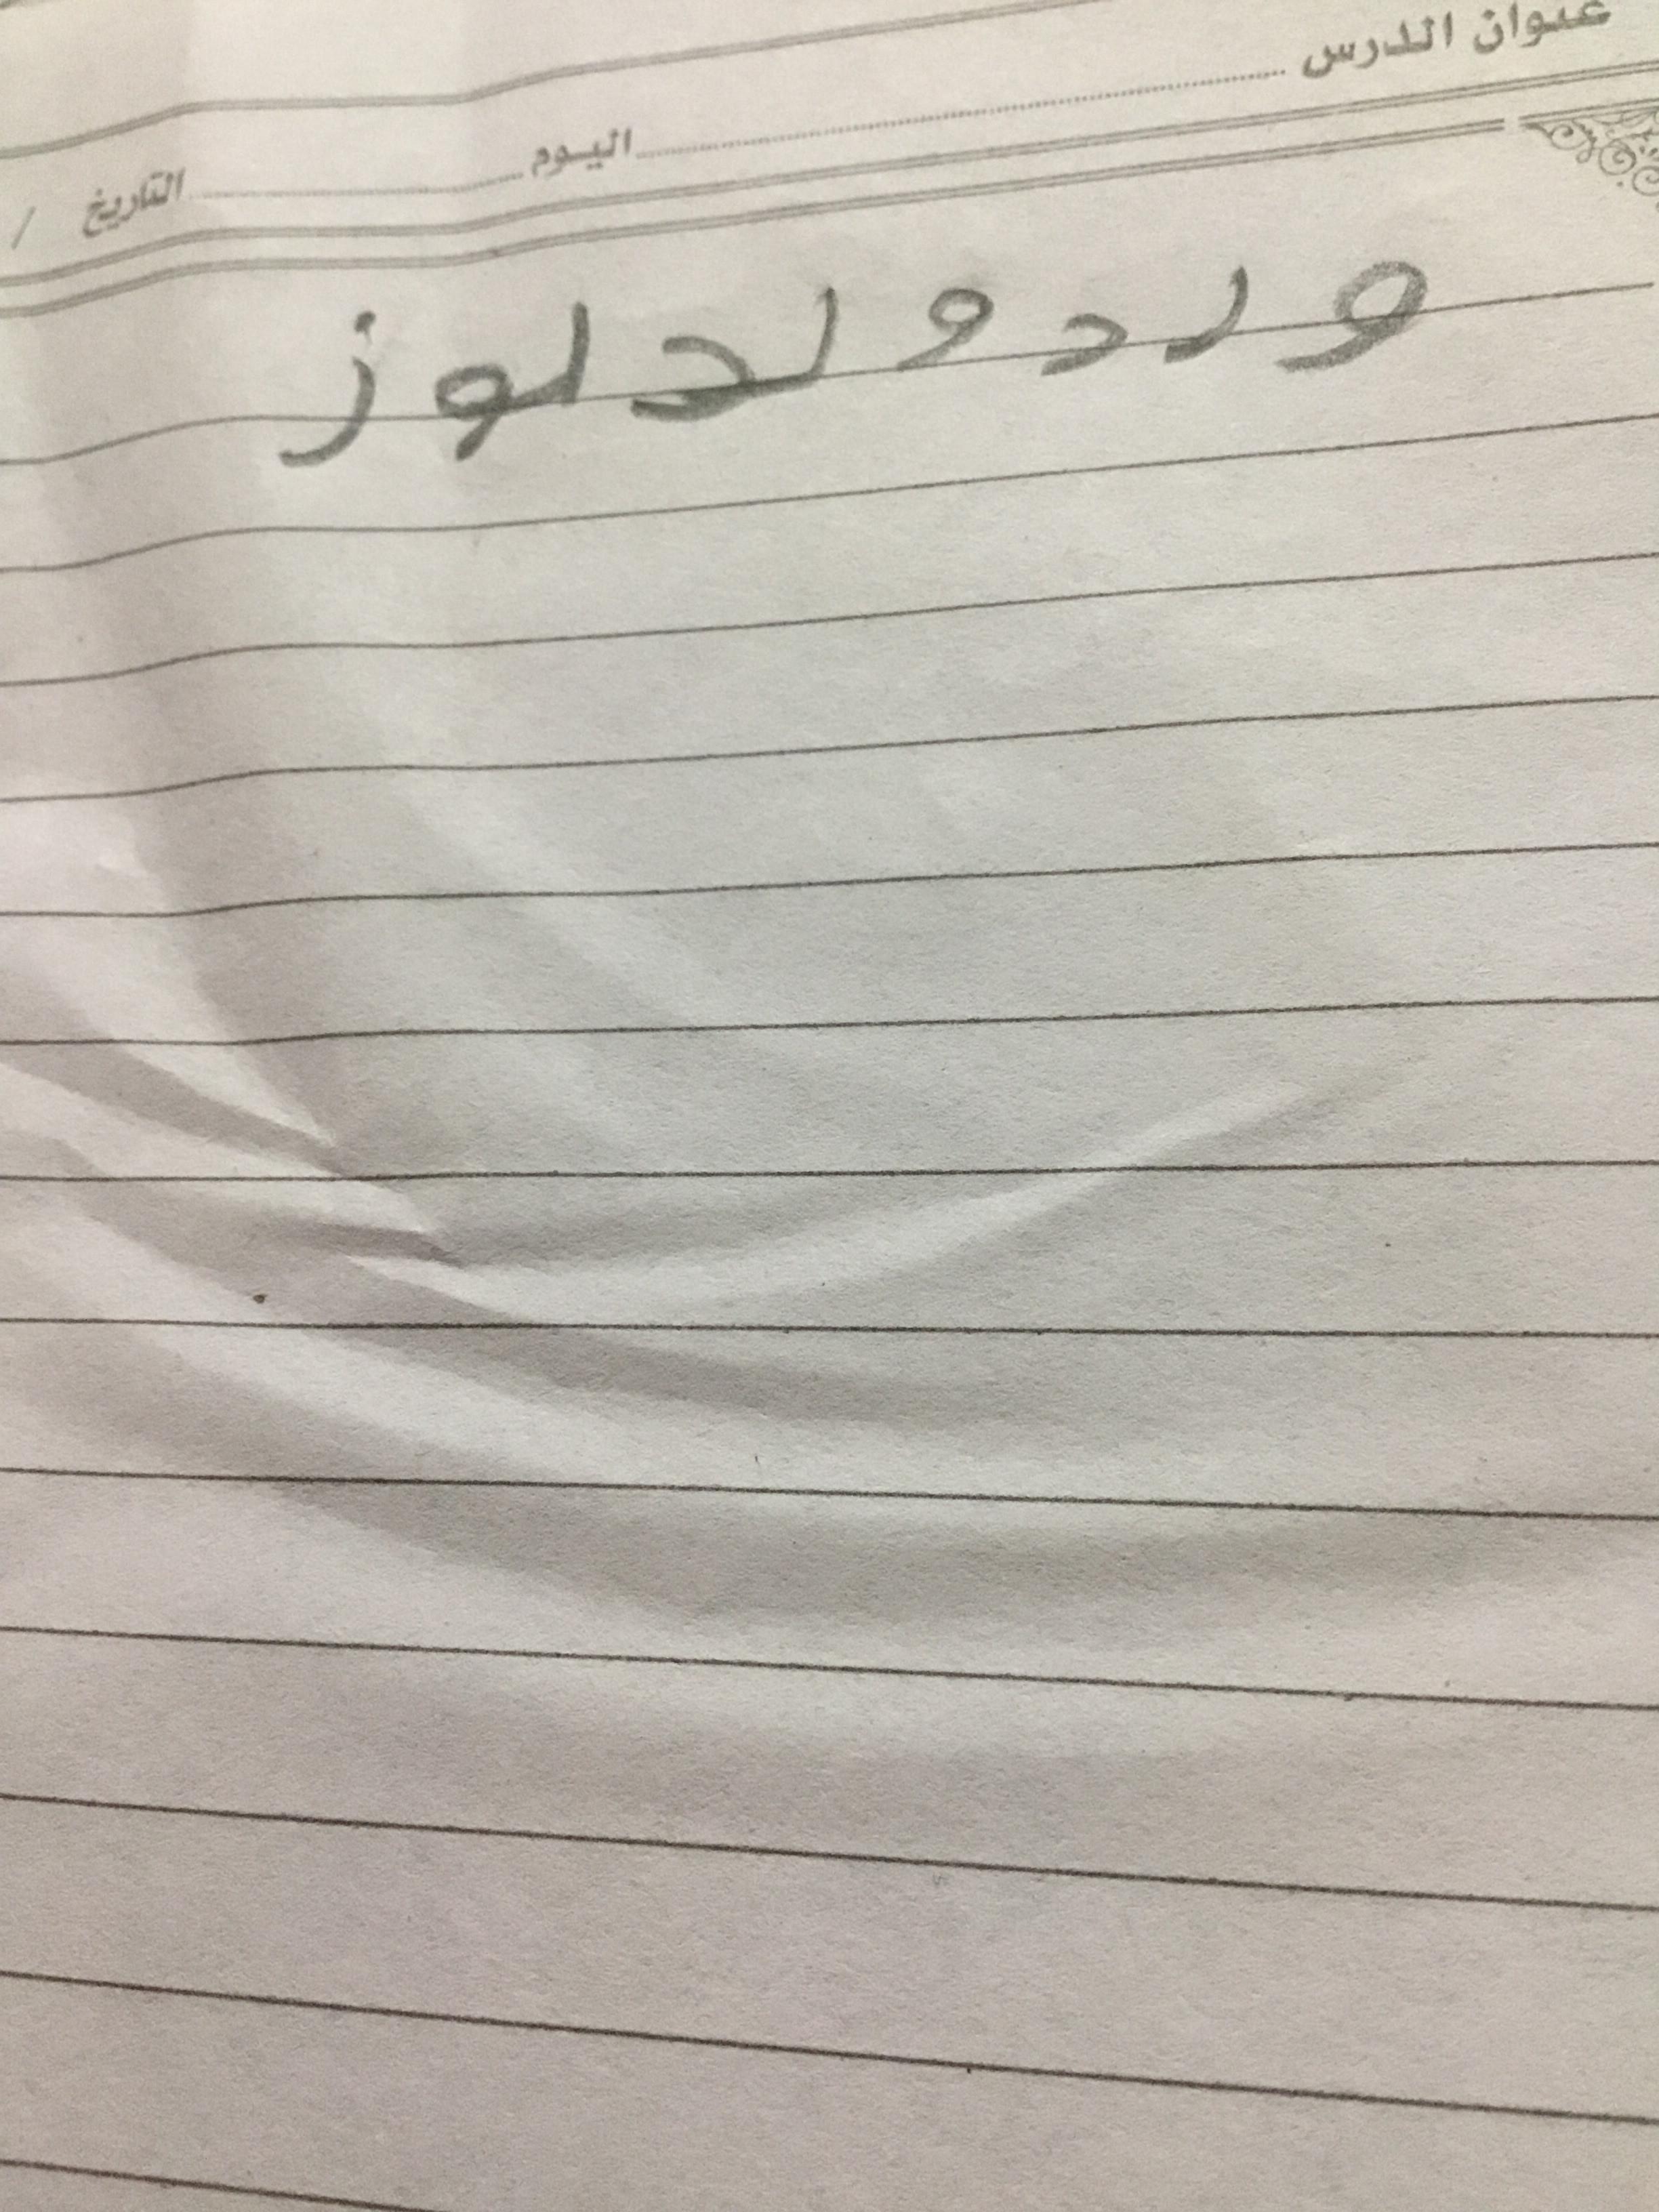 عنوان الدرس اليوم التاريخ /
ورد ولد لوز